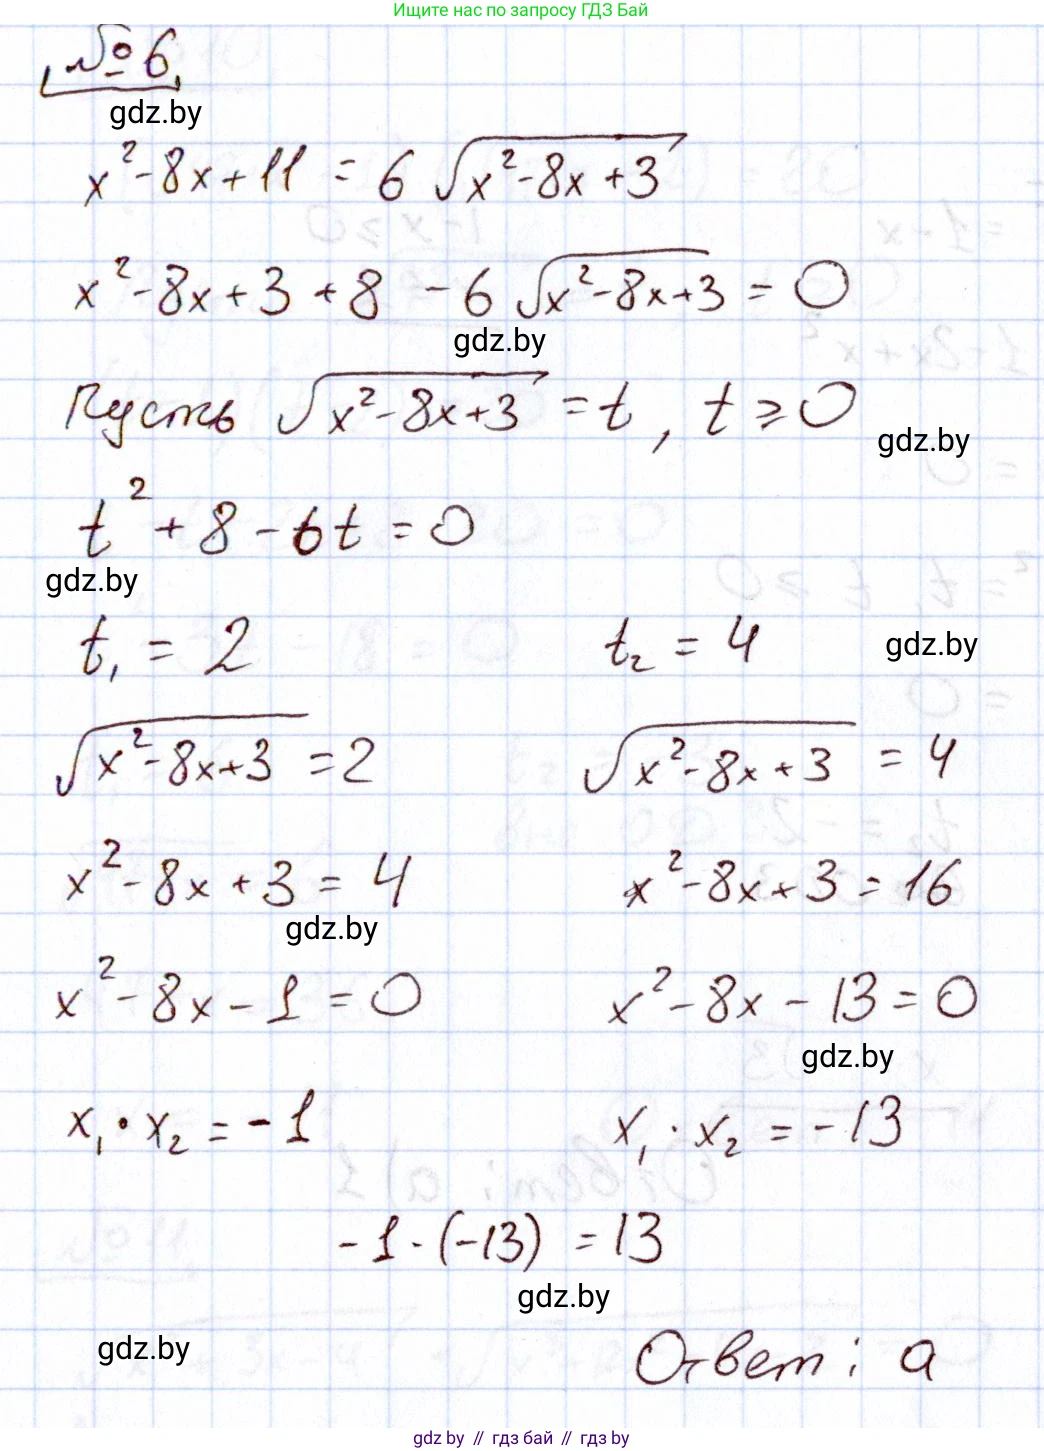 Ищите нас по запросу ГДЗ Бай
№ 6
gdz.by
x² - 8x + 11 = 6 √(x² - 8x + 3)
x² - 8x + 3 + 8 - 6 √(x² - 8x + 3) = 0
gdz.by
Пусть √(x² - 8x + 3) = t, t ≥ 0
gdz.by
t² + 8 - 6t = 0
gdz.by
t₁ = 2 t₂ = 4
gdz.by
√(x² - 8x + 3) = 2 √(x² - 8x + 3) = 4
x² - 8x + 3 = 4 x² - 8x + 3 = 16
gdz.by
x² - 8x - 1 = 0 x² - 8x - 13 = 0
gdz.by
x₁ · x₂ = -1 x₁ · x₂ = -13
-1 · (-13) = 13
gdz.by
gdz.by
Ответ: а
gdz.by // гдз бай // gdz.by